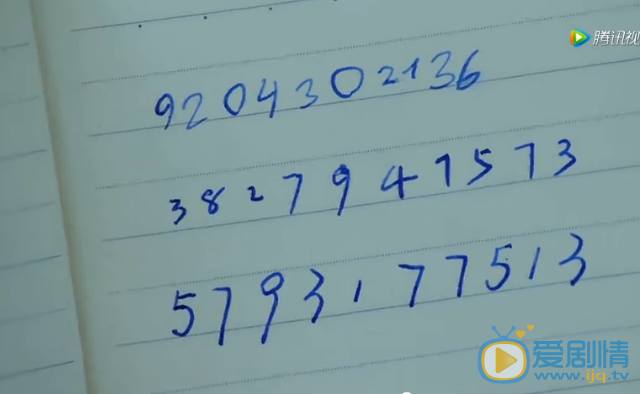 腾讯视
9204302136
38279471573
5793177513
爱剧情
www.ijq.tv